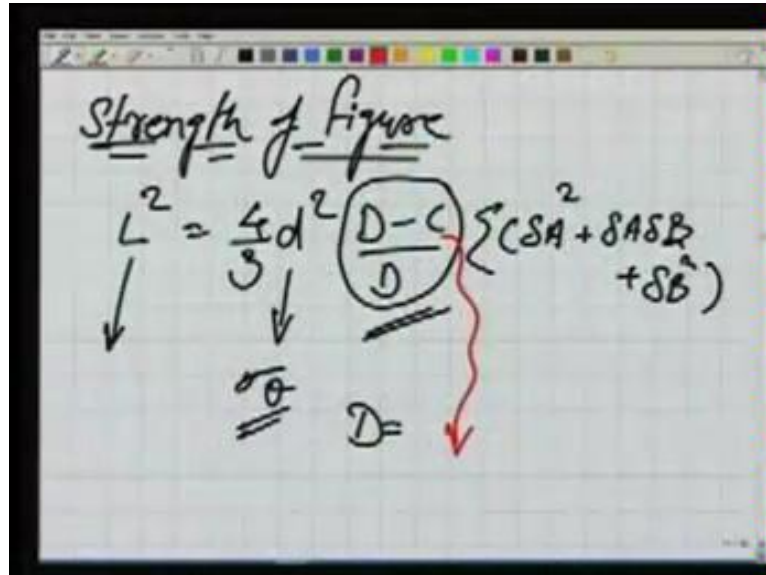 Strength of figure
L² = 4/3 d² (D-C)/D Σ(δA² + δAδB + δB²)
σθ
D=